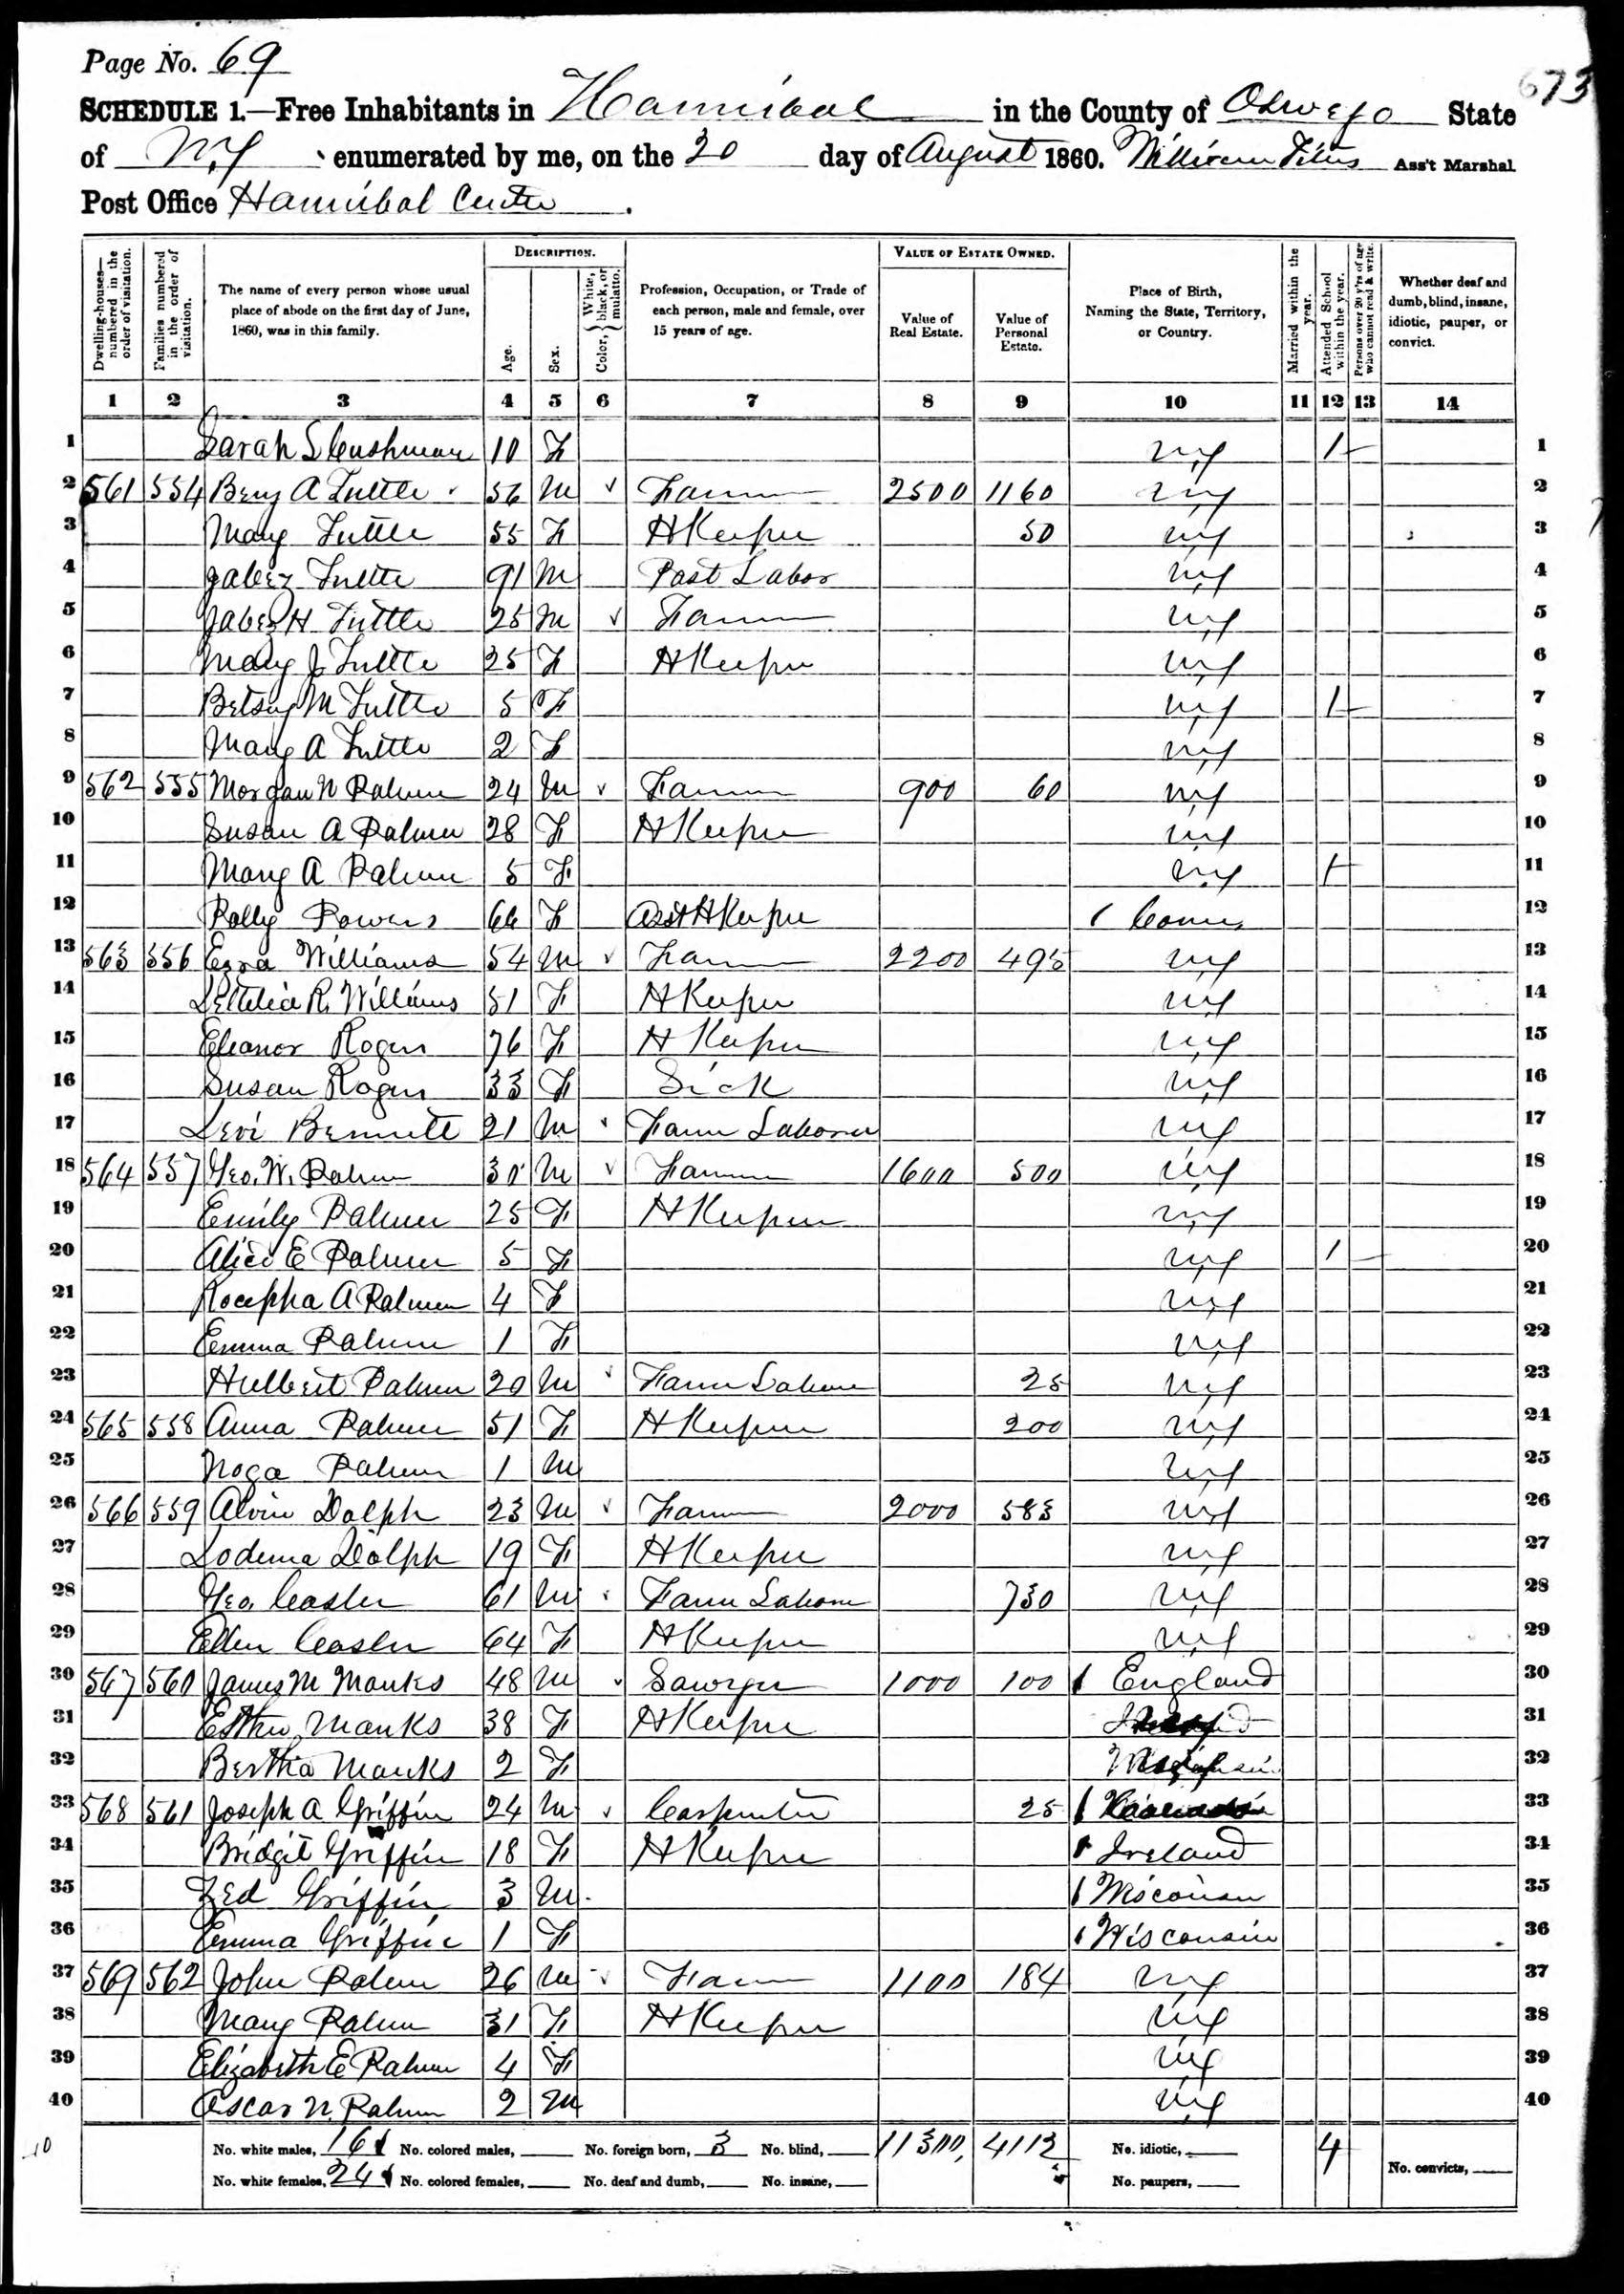 Page No. 69
673
SCHEDULE 1.—Free Inhabitants in Hannibal in the County of Oswego State
of N.Y enumerated by me, on the 20 day of August 1860. William Titus Ass't Marshal
Post Office Hannibal Center.
Dwelling-houses—numbered in the order of visitation.
Families numbered in the order of visitation.
The name of every person whose usual place of abode on the first day of June, 1860, was in this family.
DESCRIPTION.
Age.
Sex.
Color, { White, black, or mulatto.
Profession, Occupation, or Trade of each person, male and female, over 15 years of age.
VALUE OF ESTATE OWNED.
Value of Real Estate.
Value of Personal Estate.
Place of Birth, Naming the State, Territory, or Country.
Married within the year.
Attended School within the year.
Persons over 20 y'rs of age who cannot read & write.
Whether deaf and dumb, blind, insane, idiotic, pauper, or convict.
1 2 3 4 5 6 7 8 9 10 11 12 13 14
1 Sarah S Cushman 10 F N.Y 1 1
2 561 554 Benj A Tuttle 56 M Farmer 2500 1160 N.Y 2
3 Mary Tuttle 55 F H Keeper 50 N.Y 3
4 Jabez Tuttle 91 M Past Labor N.Y 4
5 Jabez H Tuttle 25 M Farmer N.Y 5
6 Mary J Tuttle 25 F H Keeper N.Y 6
7 Betsey M Tuttle 5 F N.Y 1 7
8 Mary A Tuttle 2 F N.Y 8
9 562 555 Morgan N Palmer 24 M Farmer 900 60 N.Y 9
10 Susan A Palmer 28 F H Keeper N.Y 10
11 Mary A Palmer 5 F N.Y 1 11
12 Polly Powers 66 F Asst H Keeper 1 Conn 12
13 563 556 Ezra Williams 54 M Farmer 2200 495 N.Y 13
14 R. Williams 51 F H Keeper N.Y 14
15 Eleanor Rogers 76 F H Keeper N.Y 15
16 Susan Rogers 33 F Sick N.Y 16
17 Levi Bennett 21 M Farm Laborer N.Y 17
18 564 557 Geo. W. Palmer 30 M Farmer 1600 500 N.Y 18
19 Emily Palmer 25 F H Keeper N.Y 19
20 Alice E Palmer 5 F N.Y 1 20
21 A Palmer 4 F N.Y 21
22 Emma Palmer 1 F N.Y 22
23 Hulbert Palmer 20 M Farm Laborer 25 N.Y 23
24 565 558 Anna Palmer 51 F H Keeper 200 N.Y 24
25 Palmer 1 M N.Y 25
26 566 559 Alvin Dolph 23 M Farmer 2000 583 N.Y 26
27 Lodema Dolph 19 F H Keeper N.Y 27
28 Geo. Casler 61 M Farm Laborer 730 N.Y 28
29 Ellen Casler 64 F H Keeper N.Y 29
30 567 560 James M Manks 48 M Sawyer 1000 100 1 England 30
31 Esther Manks 38 F H Keeper 31
32 Bertha Manks 2 F 32
33 568 561 Joseph A Griffin 24 M Carpenter 25 1 33
34 Bridgit Griffin 18 F H Keeper 1 Ireland 34
35 Zed Griffin 3 M 1 Wisconsin 35
36 Emma Griffin 1 F 1 Wisconsin 36
37 569 562 John Palmer 26 M Farmer 1100 184 N.Y 37
38 Mary Palmer 31 F H Keeper N.Y 38
39 Elizabeth E Palmer 4 F N.Y 39
40 Oscar N. Palmer 2 M N.Y 40
10 No. white males, 16 No. colored males, No. foreign born, 3 No. blind, 11300, 4112 No. idiotic, 4
No. white females, 24 No. colored females, No. deaf and dumb, No. insane, No. paupers, No. convicts,